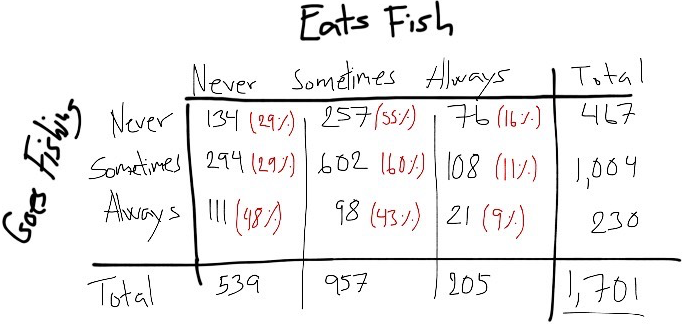 Eats Fish
Never Sometimes Always Total
Goes Fishing
Never 134 (29%) 257 (55%) 76 (16%) 467
Sometimes 294 (29%) 602 (60%) 108 (11%) 1,004
Always 111 (48%) 98 (43%) 21 (9%) 230
Total 539 957 205 1,701